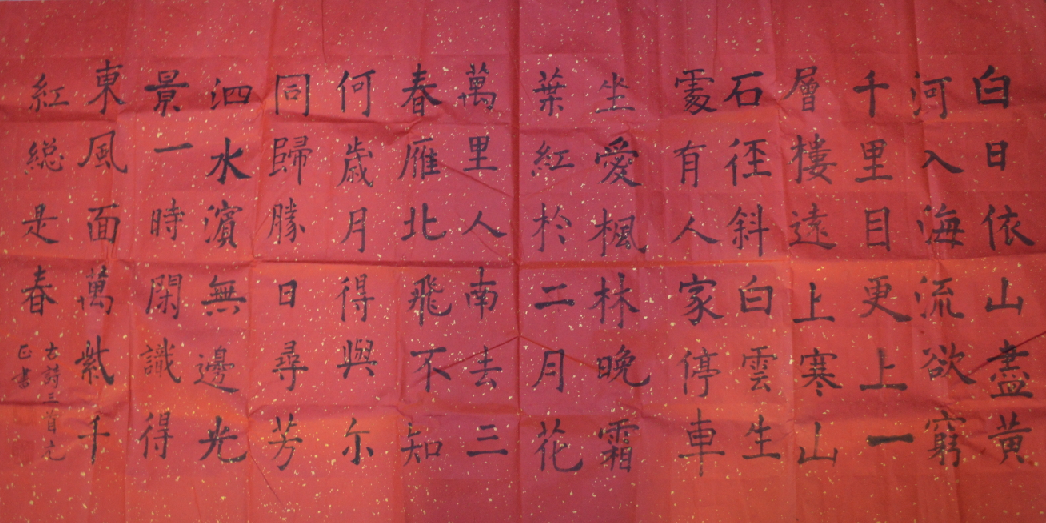 白日依山盡黃
河入海流欲窮
千里目更上一
層樓遠上寒山
石径斜白雲生
處有人家停車
坐愛楓林晚霜
葉紅於二月花
萬里人南去三
春雁北飛不知
何歲月得與尔
同歸勝日尋芳
泗水濱無邊光
景一時閑識得
東風面萬紫千
紅總是春
古詩三首
正書